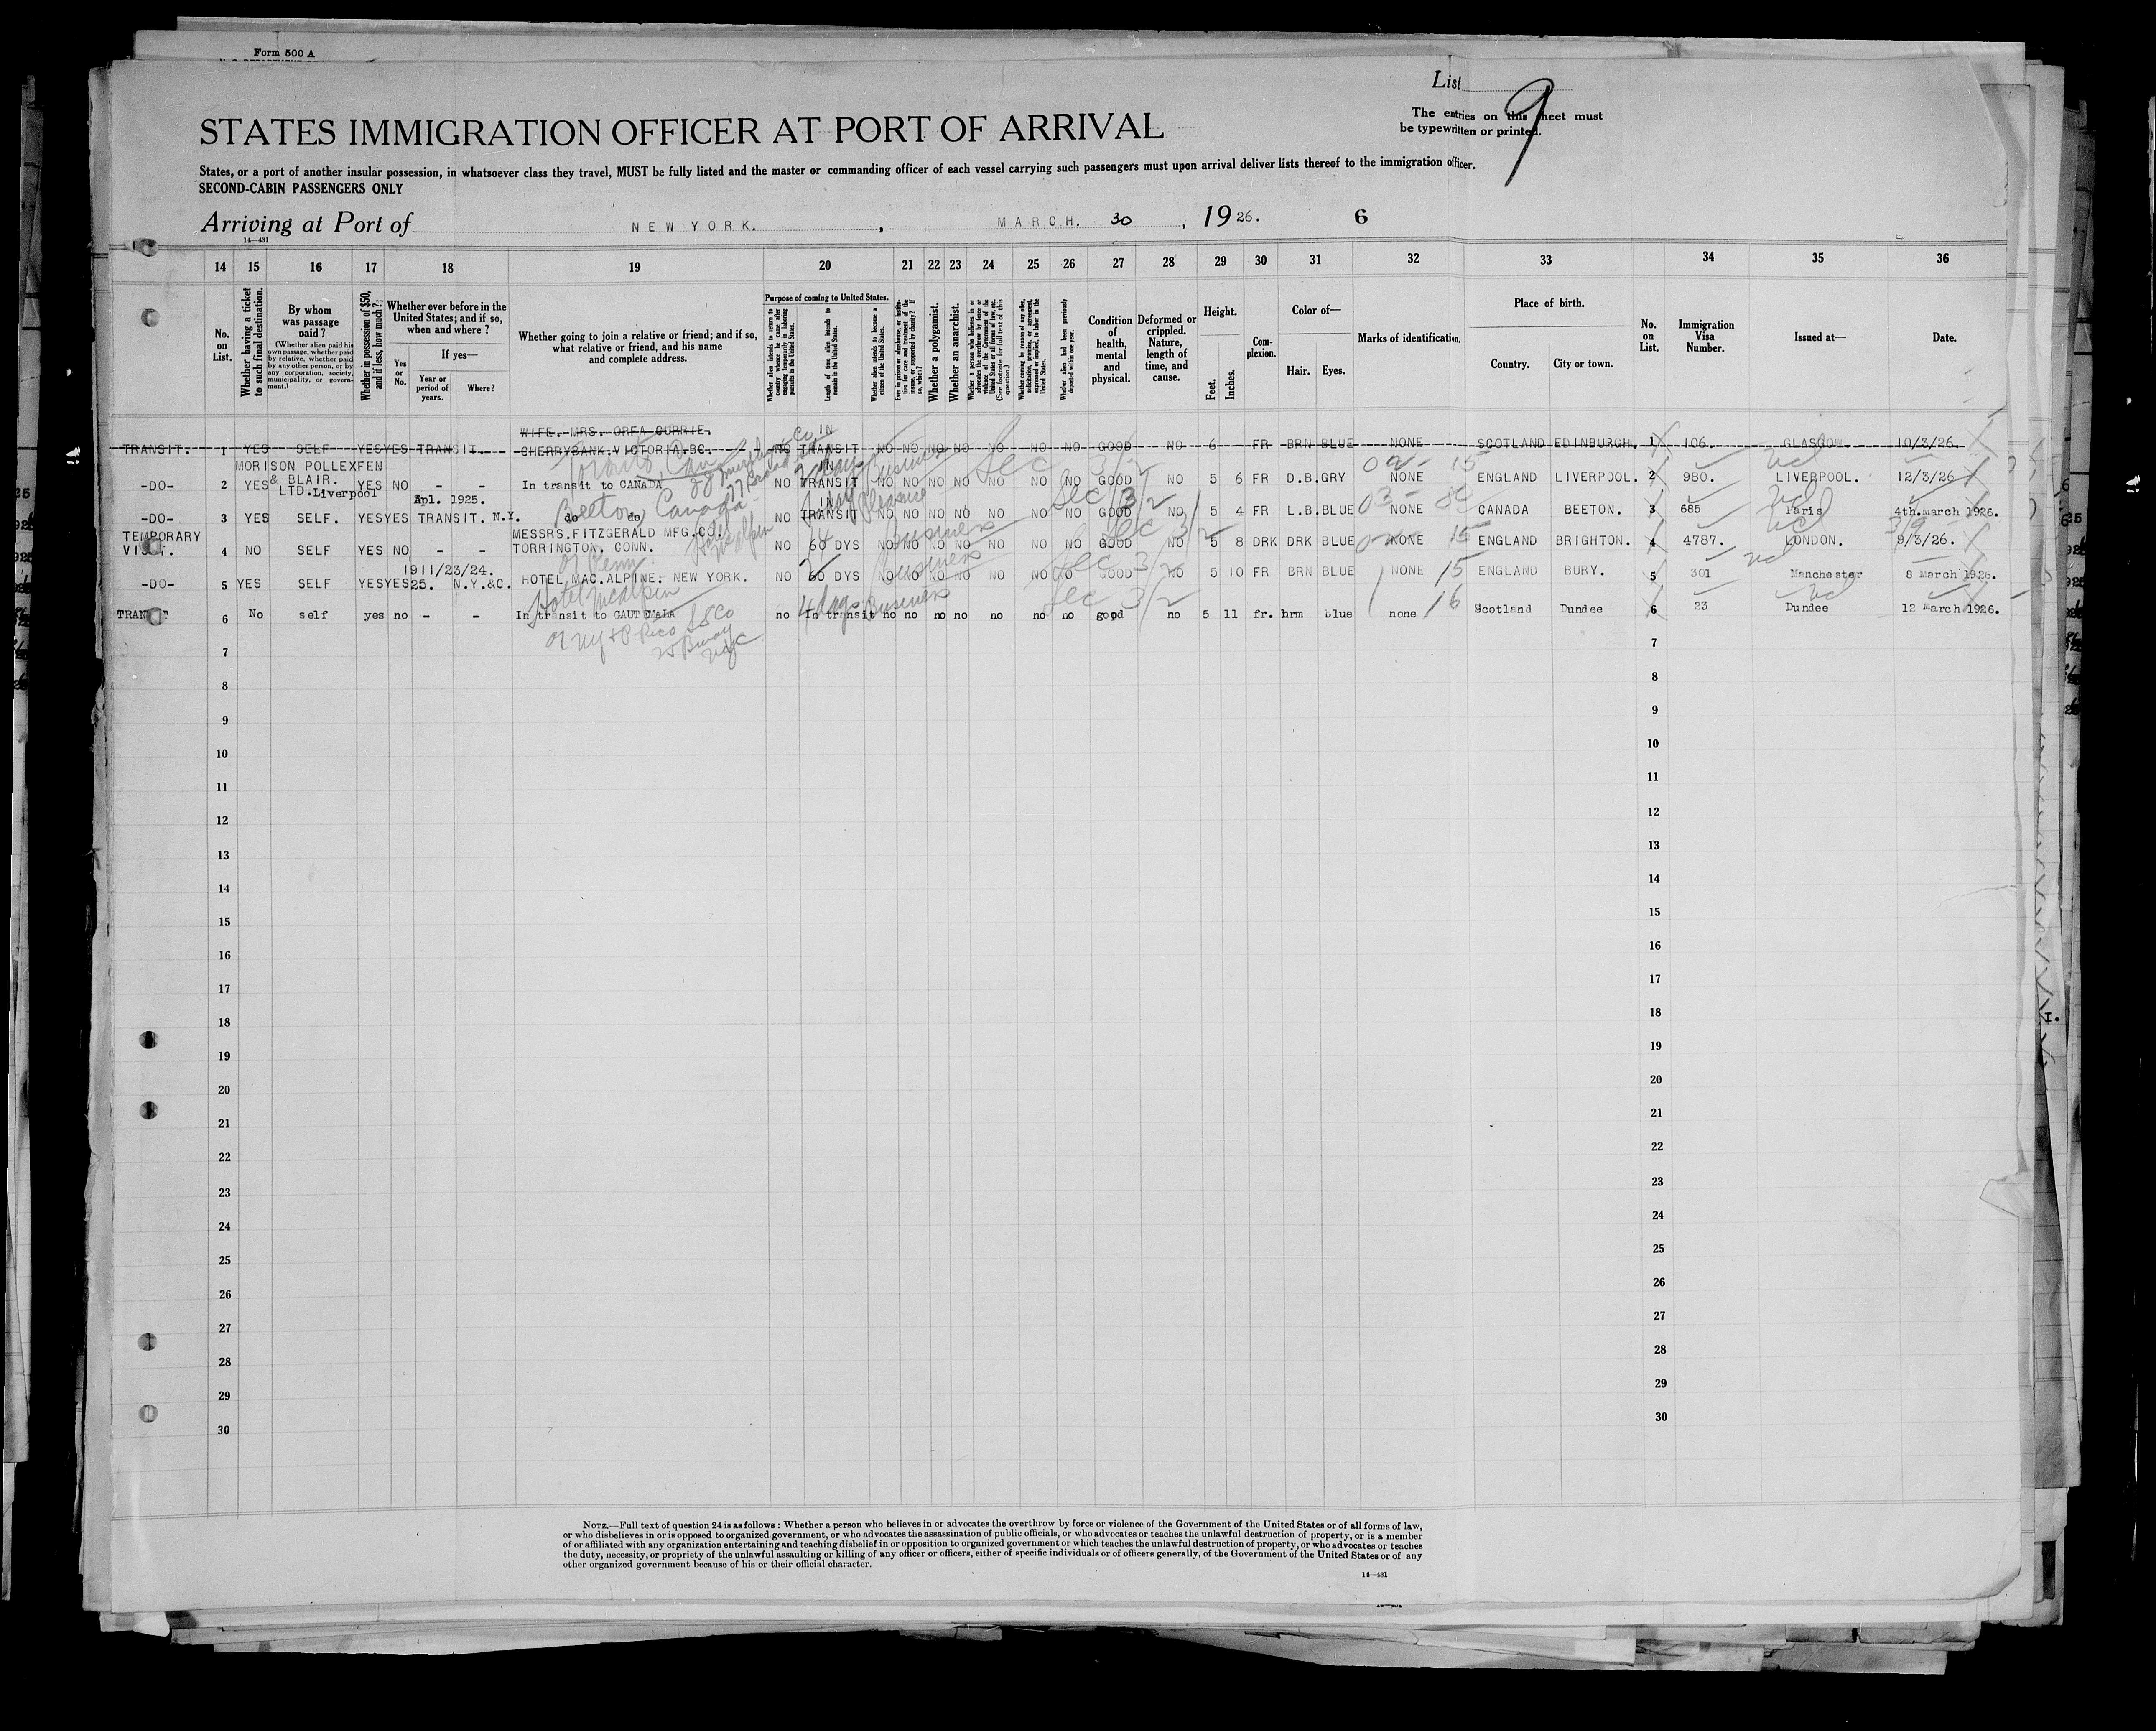 Form 500 A
List 9
The entries on this sheet must
be typewritten or printed.
STATES IMMIGRATION OFFICER AT PORT OF ARRIVAL
States, or a port of another insular possession, in whatsoever class they travel, MUST be fully listed and the master or commanding officer of each vessel carrying such passengers must upon arrival deliver lists thereof to the immigration officer.
SECOND-CABIN PASSENGERS ONLY
Arriving at Port of NEW YORK. , MARCH. 30 , 1926. 6
14—431
14 15 16 17 18 19 20 21 22 23 24 25 26 27 28 29 30 31 32 33 34 35 36
No. on List.
Whether having a ticket to such final destination.
By whom was passage paid?
(Whether alien paid his own passage, whether paid by relative, whether paid by any other person, or by any corporation, society, municipality, or government.)
Whether in possession of $50, and if less, how much?
Whether ever before in the United States; and if so, when and where?
Yes or No.
If yes—
Year or period of years.
Where?
Whether going to join a relative or friend; and if so, what relative or friend, and his name and complete address.
Purpose of coming to United States.
Whether alien intends to return to country whence he came after engaging temporarily in laboring pursuits in the United States.
Length of time alien intends to remain in the United States.
Whether alien intends to become a citizen of the United States.
Whether a polygamist.
Whether an anarchist.
Condition of health, mental and physical.
Deformed or crippled. Nature, length of time, and cause.
Height.
Feet.
Inches.
Complexion.
Color of—
Hair. Eyes.
Marks of identification.
Place of birth.
Country. City or town.
No. on List.
Immigration Visa Number.
Issued at—
Date.
WIFE. MRS. ORFA CURRIE. IN
TRANSIT. 1 YES SELF YES YES TRANSIT. - CHERRYBANK.VICTORIA.BC. NO TRANSIT NO NO NO NO NO NO NO GOOD NO 6 - FR BRN BLUE NONE SCOTLAND EDINBURGH. 1 106. GLASGOW 10/3/26.
Toronto, Can
MORISON POLLEXFEN
& BLAIR.
LTD.Liverpool
-DO- 2 YES YES NO - - In transit to CANADA NO IN TRANSIT NO NO NO NO NO NO NO GOOD NO 5 6 FR D.B. GRY NONE ENGLAND LIVERPOOL. 2 980. LIVERPOOL. 12/3/26
Business Sec 3/2
Beeton, Canada
Apl. 1925.
-DO- 3 YES SELF. YES YES TRANSIT. N.Y. do do NO IN TRANSIT NO NO NO NO NO NO NO GOOD NO 5 4 FR L.B. BLUE NONE CANADA BEETON. 3 685 Paris 4th.march 1926.
Pleasure Sec 3/2
TEMPORARY
VISIT. 4 NO SELF YES NO - - MESSRS.FITZGERALD MFG.CO.
TORRINGTON, CONN. NO 60 DYS NO NO NO NO NO NO NO GOOD NO 5 8 DRK DRK BLUE NONE ENGLAND BRIGHTON. 4 4787. LONDON. 9/3/26.
Business Sec 3/2
1911/23/24.
-DO- 5 YES SELF YES YES 25. N.Y.&C. HOTEL MAC.ALPINE. NEW YORK. NO 60 DYS NO NO NO NO NO NO NO GOOD NO 5 10 FR BRN BLUE NONE ENGLAND BURY. 5 301 Manchester 8 March 1926.
Business Sec 3/2
Hotel McAlpin
TRANSIT 6 No self yes no - - In transit to GAUTEMALA no In transit no no no no no no no good no 5 11 fr. brm blue none Scotland Dundee 6 23 Dundee 12 march 1926.
4 days Business Sec 3/2
of NY & P Rico SS Co
25 Bway
NYC
7 7
8 8
9 9
10 10
11 11
12 12
13 13
14 14
15 15
16 16
17 17
18 18
19 19
20 20
21 21
22 22
23 23
24 24
25 25
26 26
27 27
28 28
29 29
30 30
NOTE.—Full text of question 24 is as follows: Whether a person who believes in or advocates the overthrow by force or violence of the Government of the United States or of all forms of law,
or who disbelieves in or is opposed to organized government, or who advocates the assassination of public officials, or who advocates or teaches the unlawful destruction of property, or is a member
of or affiliated with any organization entertaining and teaching disbelief in or opposition to organized government or which teaches the unlawful destruction of property, or who advocates or teaches
the duty, necessity, or propriety of the unlawful assaulting or killing of any officer or officers, either of specific individuals or of officers generally, of the Government of the United States or of any
other organized government because of his or their official character.
14—431